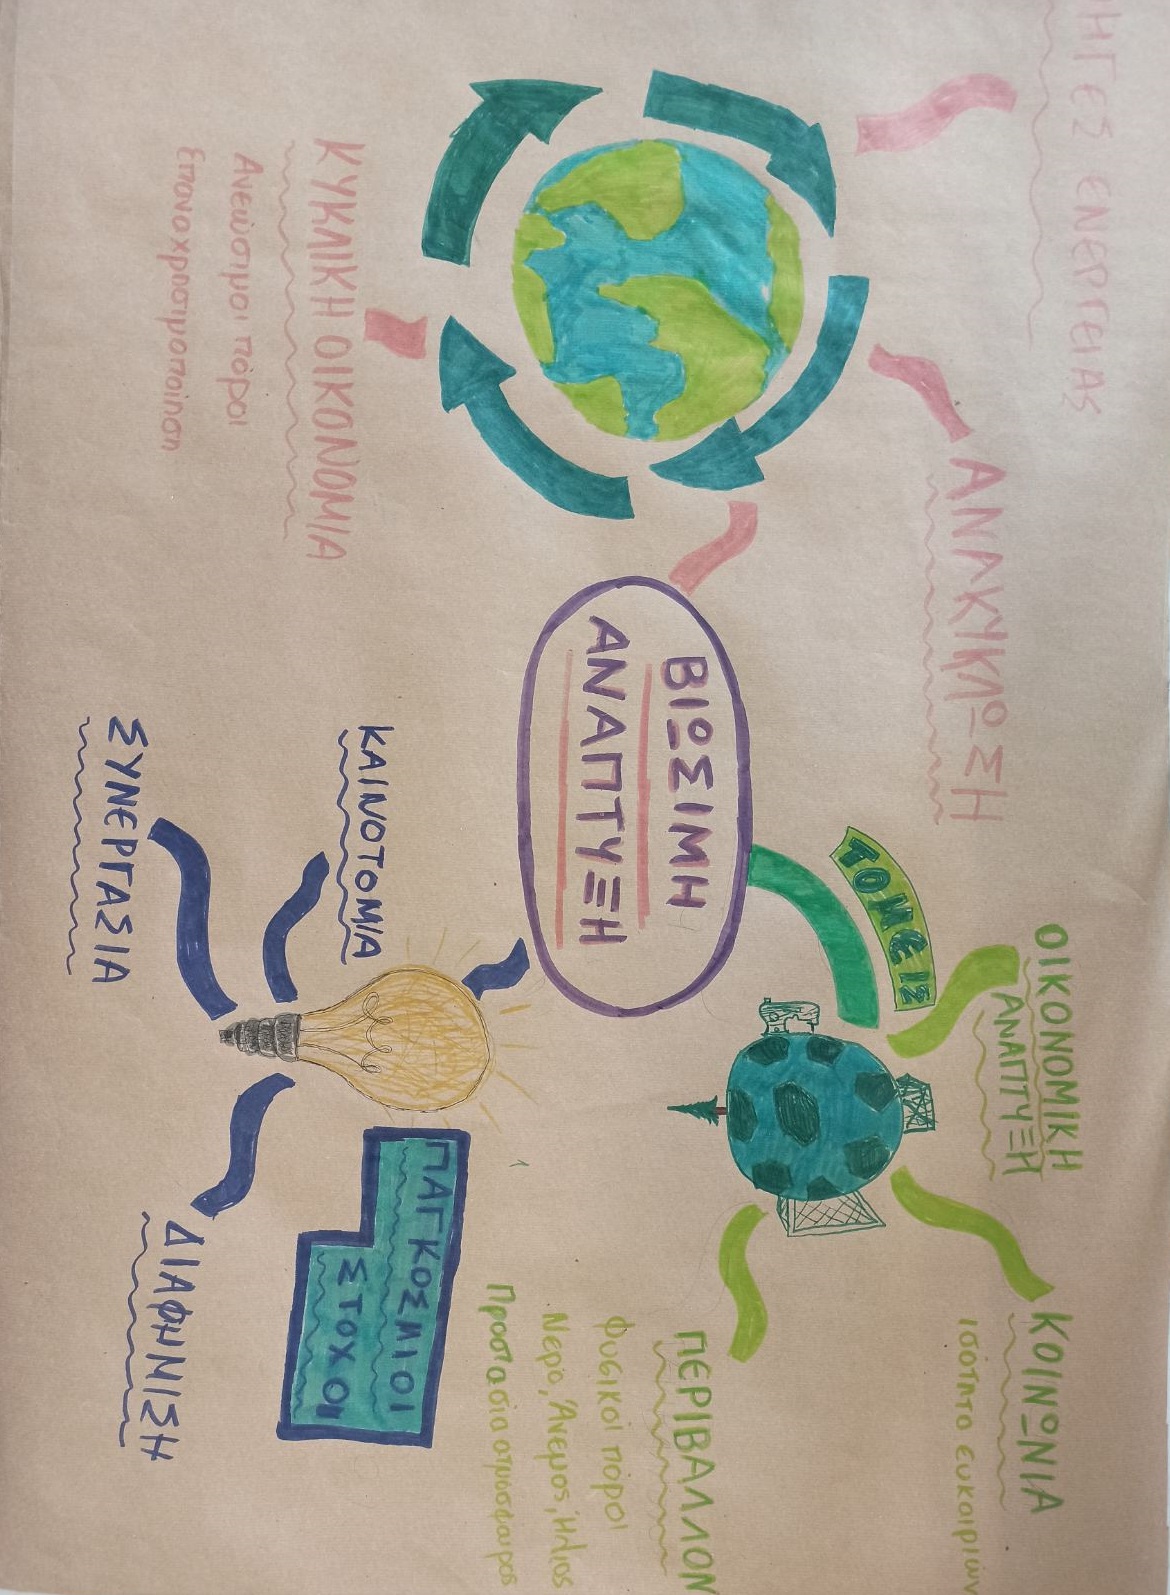 ΗΓΕΣ ΕΝΕΡΓΕΙΑΣ
ΑΝΑΚΥΚΛΩΣΗ
ΚΥΚΛΙΚΗ ΟΙΚΟΝΟΜΙΑ
Ανεώσιμοι πόροι
Επαναχρησιμοποίηση
ΒΙΩΣΙΜΗ
ΑΝΑΠΤΥΞΗ
ΤΟΜΕΙΣ
ΟΙΚΟΝΟΜΙΚΗ
ΑΝΑΠΤΥΞΗ
ΚΟΙΝΩΝΙΑ
ισότητα ευκαιριών
ΠΕΡΙΒΑΛΛΟΝ
Φυσικοί πόροι
Νερό, Άνεμος, Ήλιος
Προστασία ατμόσφαιρας
ΚΑΙΝΟΤΟΜΙΑ
ΣΥΝΕΡΓΑΣΙΑ
ΠΑΓΚΟΣΜΙΟΙ
ΣΤΟΧΟΙ
ΔΙΑΦΗΜΙΣΗ